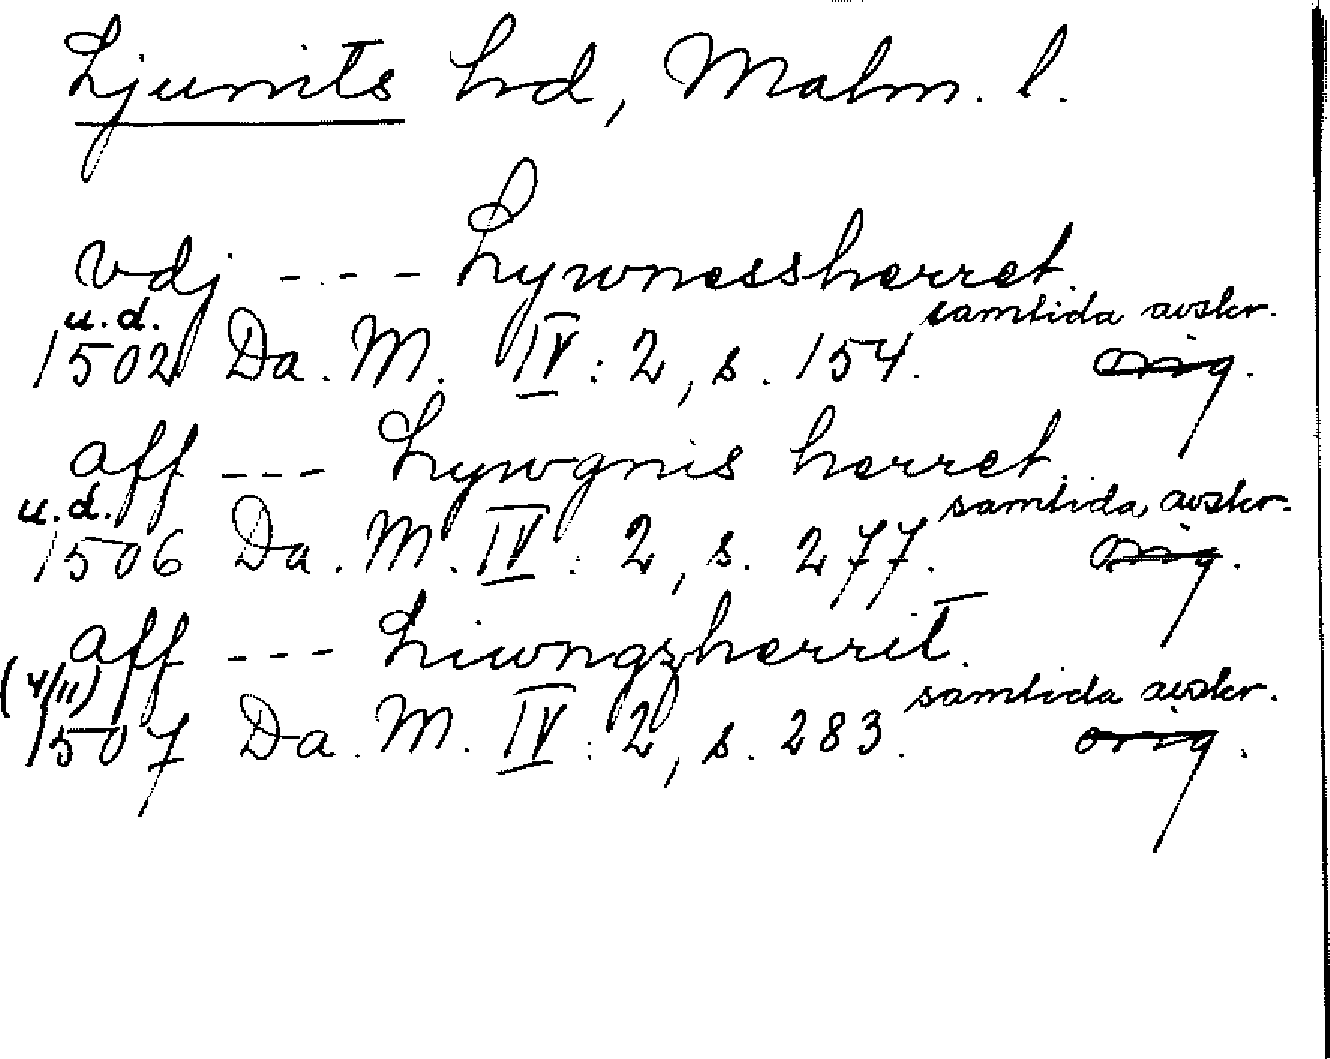 Ljunits hd, Malm. l.
vdj - - - Lywnessherret.
u.d. samtida avskr.
1502 Da. M. IV: 2, s. 154. orig.
aff - - - Lywgnis herret.
u.d. samtida avskr.
1506 Da. M. IV: 2, s. 277. orig.
aff - - - Liwngzherrit.
(4/11) samtida avskr.
1507 Da. M. IV: 2, s. 283. orig.